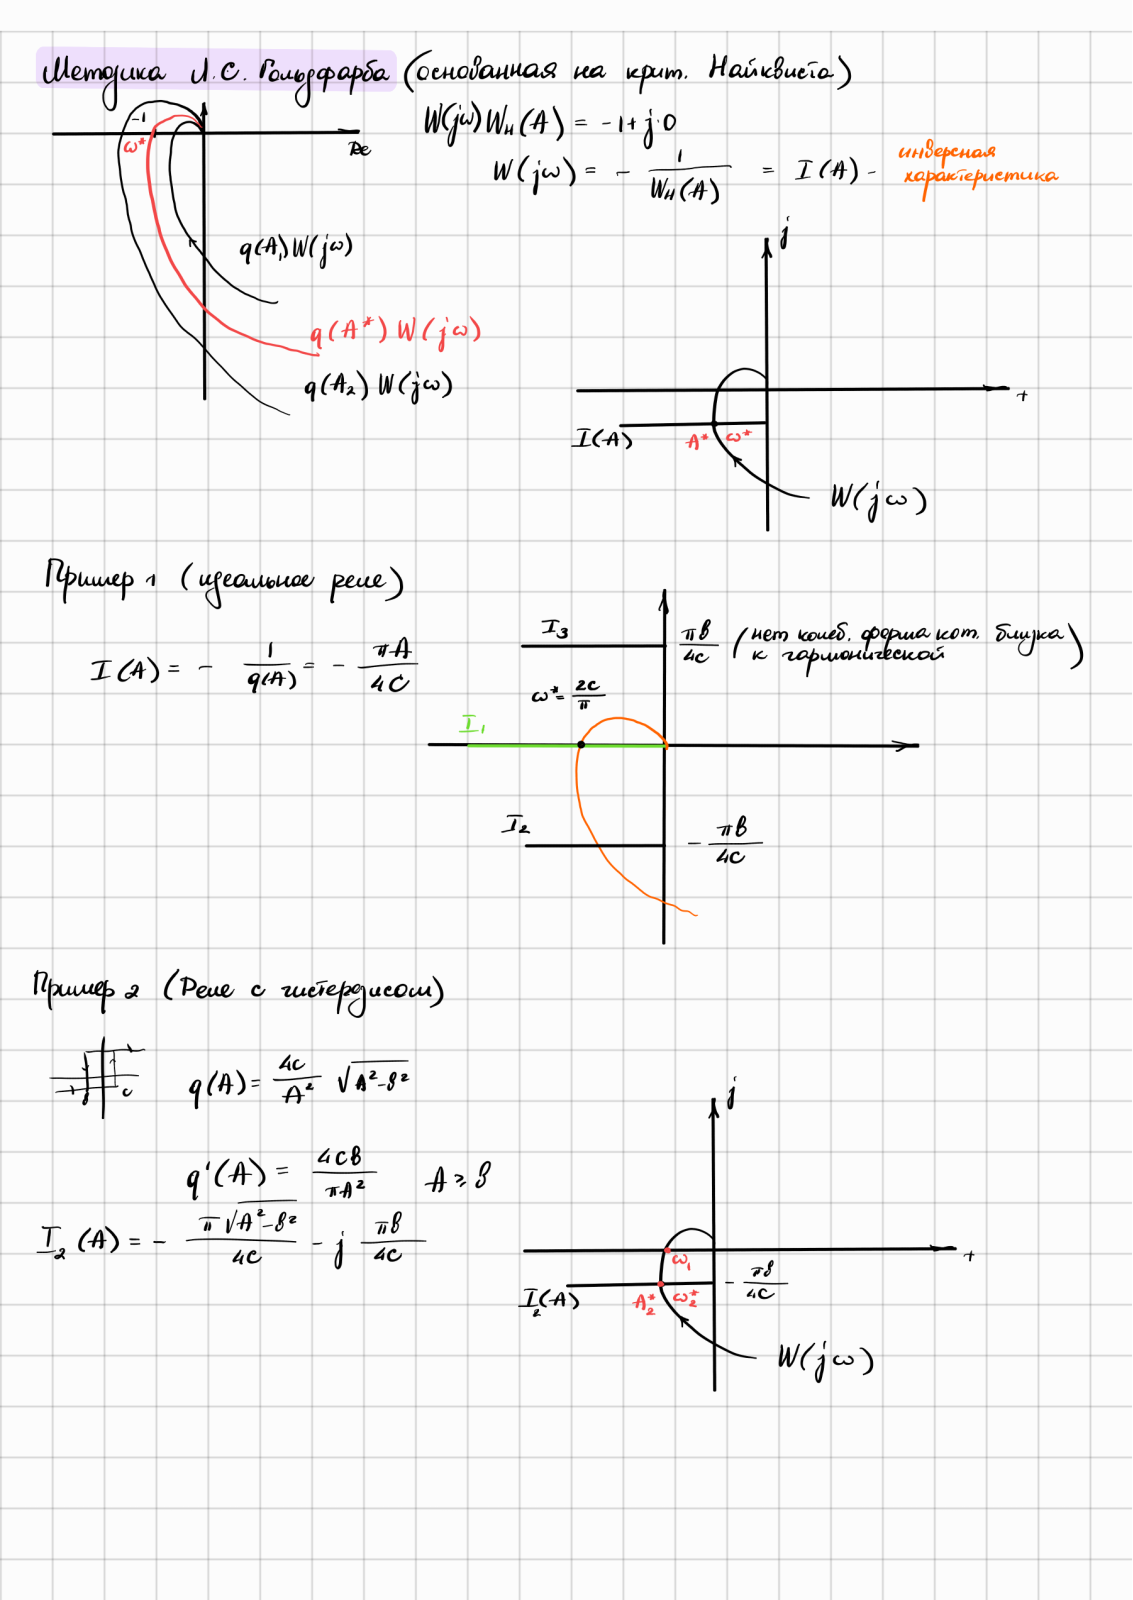 Методика Л.С. Гольдфарба (основанная на крит. Найквиста)
-1
ω*
Re
W(jω)W_H(A) = -1 + j·0
W(jω) = - 1/W_H(A) = I(A) - инверсная характеристика
q(A₁)W(jω)
q(A*)W(jω)
q(A₂)W(jω)
j
+
I(A)
A* ω*
W(jω)
Пример 1 (идеальное реле)
I(A) = - 1/q(A) = - πA/4C
I₃
πB/4C (нет колеб. форма кот. близка
к гармонической)
ω* = 2C/π
I₁
I₂
- πB/4C
Пример 2 (Реле с гистерезисом)
c
q(A) = 4C/A² √A²-B²
q'(A) = 4CB/πA² A ≥ B
I₂(A) = - π√A²-B²/4C - j πB/4C
j
+
ω₁
I₂(A)
A₂* ω₂*
- πB/4C
W(jω)